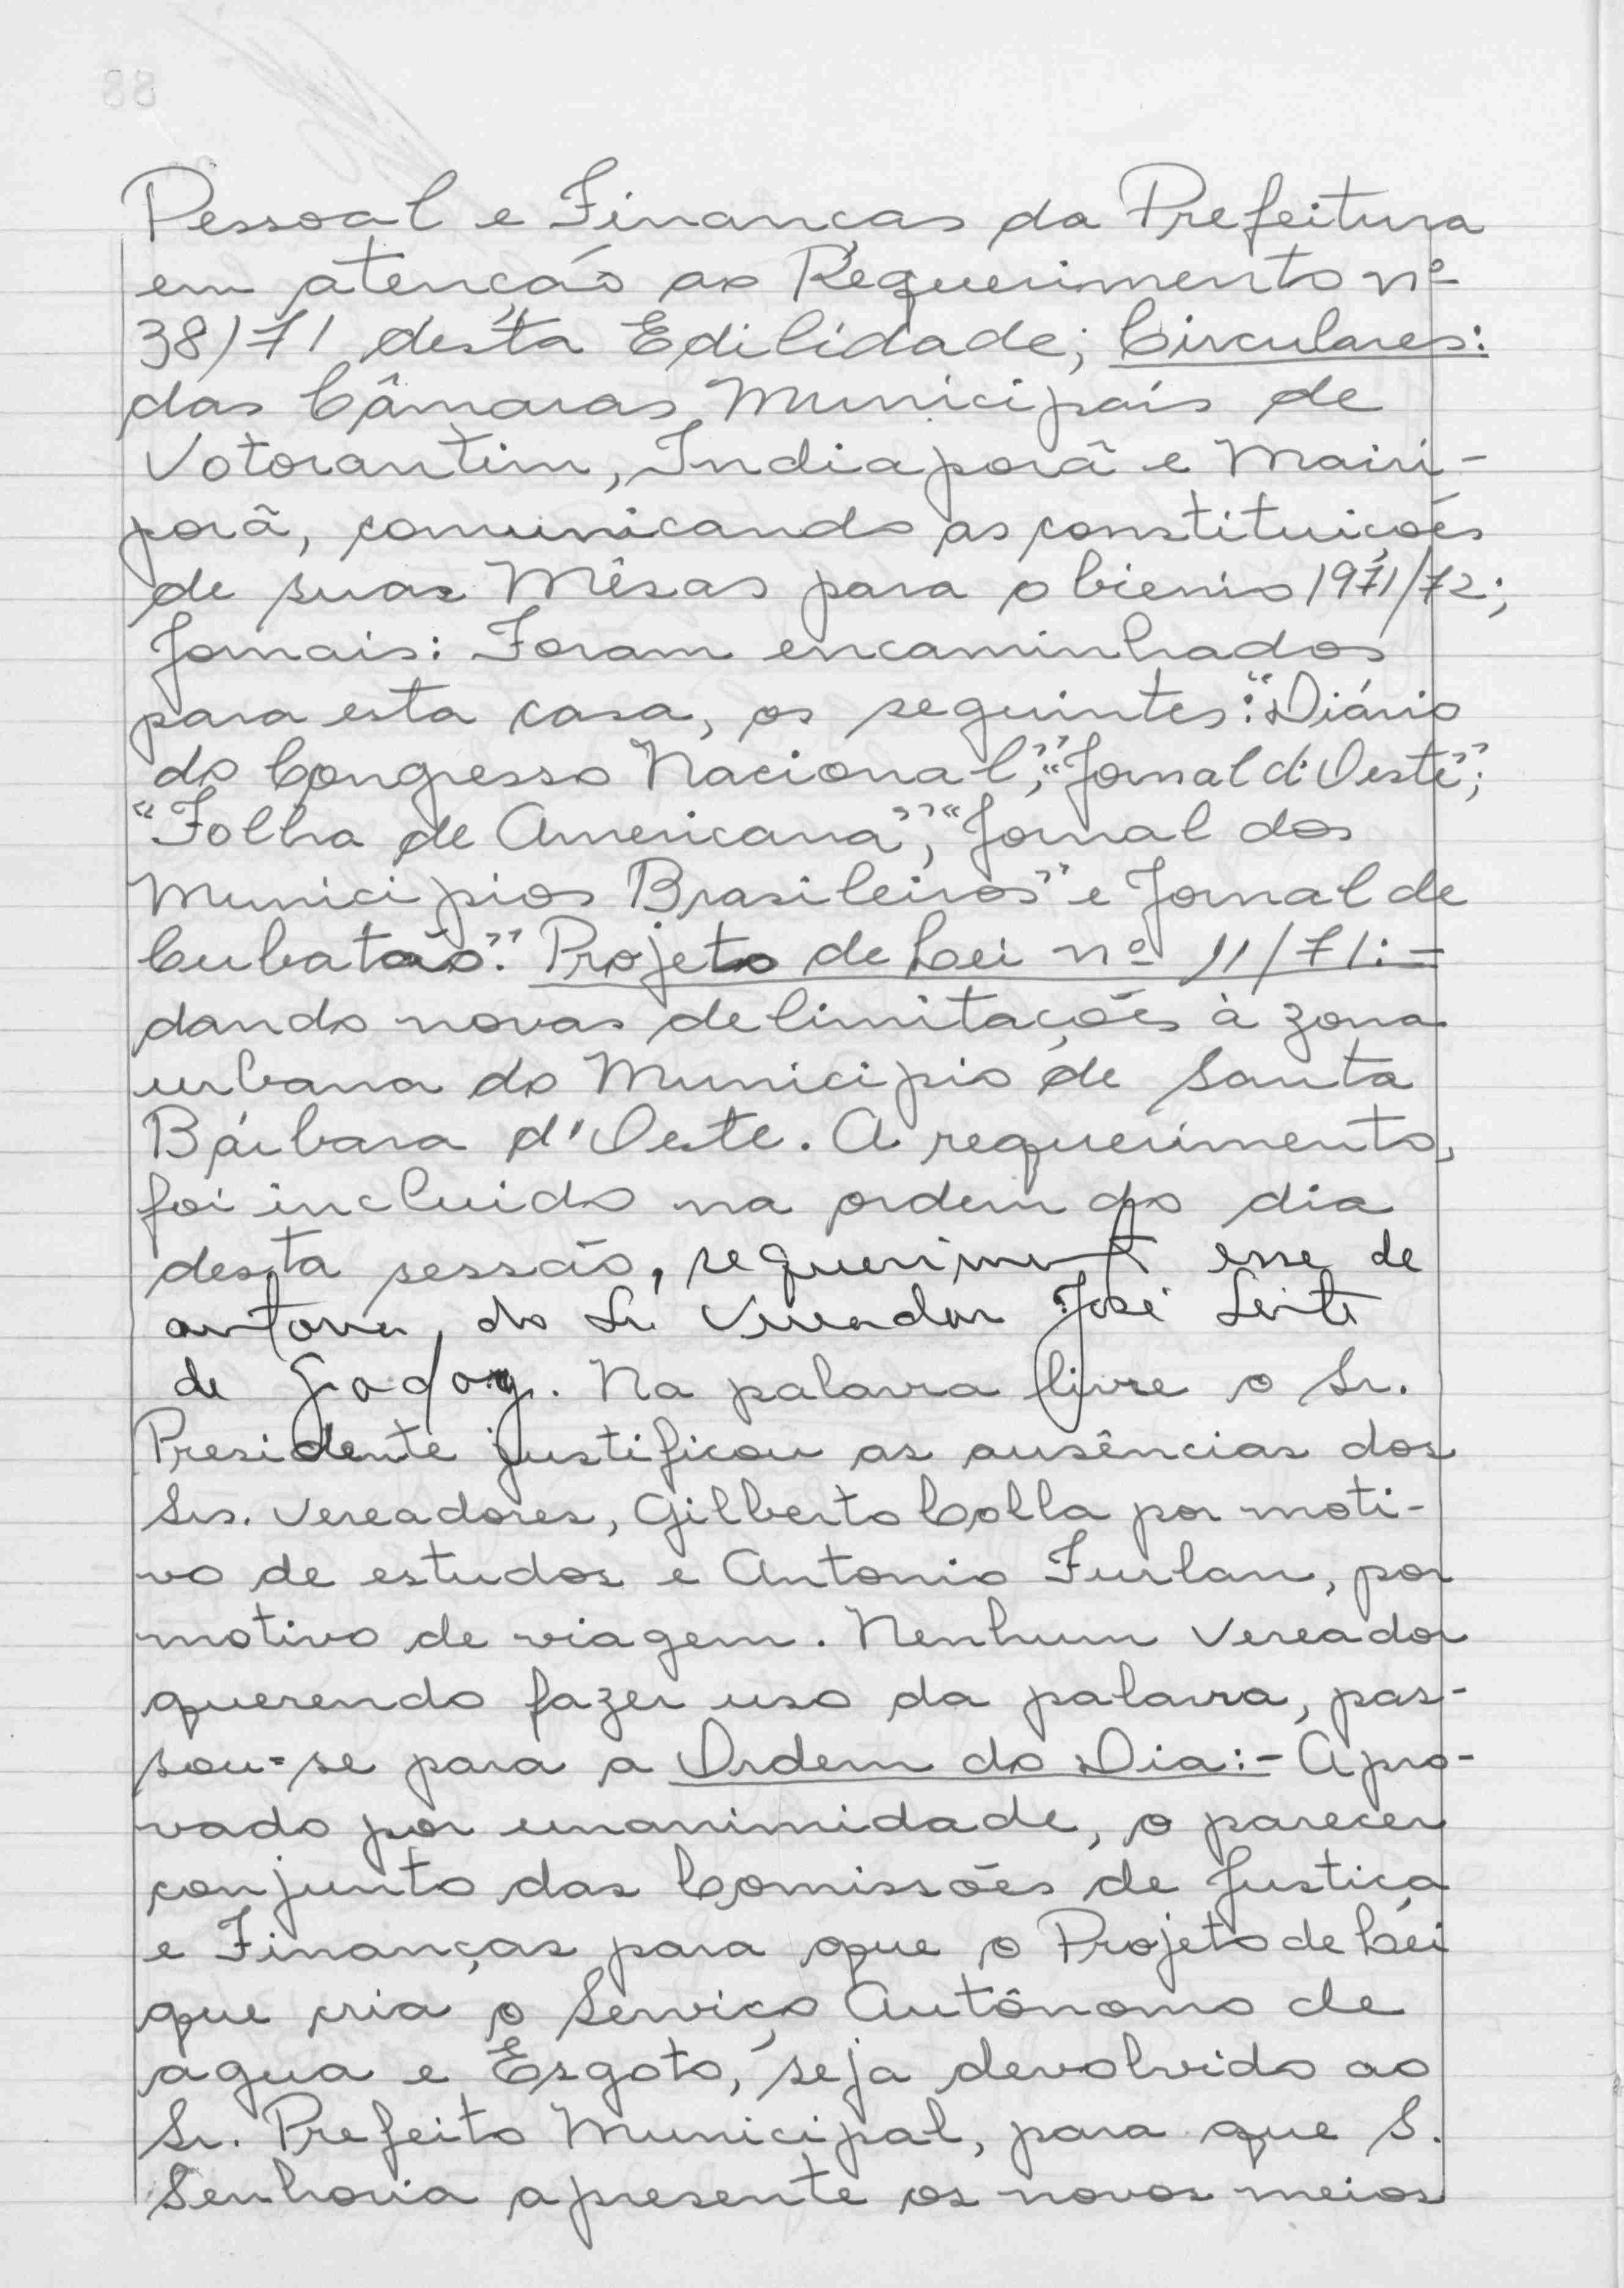 Pessoal e Finanças da Prefeitura
em atenção ao Requerimento nº
38/71 desta Edilidade; Circulares:
das Câmaras Municipais de
Votorantim, Indiaporã e Mairi-
porã, comunicando as constituições
de suas Mêsas para o bienio 1971/72;
Jornais: Foram encaminhados
para esta casa, os seguintes: "Diário
do Congresso Nacional"; "Jornal d'Oeste";
"Folha de Americana"; "Jornal dos
Municipios Brasileiros" e Jornal de
Cubatão". Projeto de Lei nº 11/71: =
dando novas delimitações à zona
urbana do Municipio de Santa
Bárbara d'Oeste. A requerimento,
foi incluido na ordem do dia
desta sessão, requerimento esse de
autoria, do Sr. Vereador José Leite
de Godoy. Na palavra livre o Sr.
Presidente justificou as ausências dos
Srs. Vereadores, Gilberto Colla por moti-
vo de estudos e Antonio Furlan, por
motivo de viagem. Nenhum Vereador
querendo fazer uso da palavra, pas-
sou=se para a Ordem do Dia:- Apro-
vado por unanimidade, o parecer
conjunto das Comissões de Justiça
e Finanças para que o Projeto de Lei
que cria o Serviço Autônomo de
agua e Esgoto, seja devolvido ao
Sr. Prefeito Municipal, para que S.
Senhoria apresente os novos meios